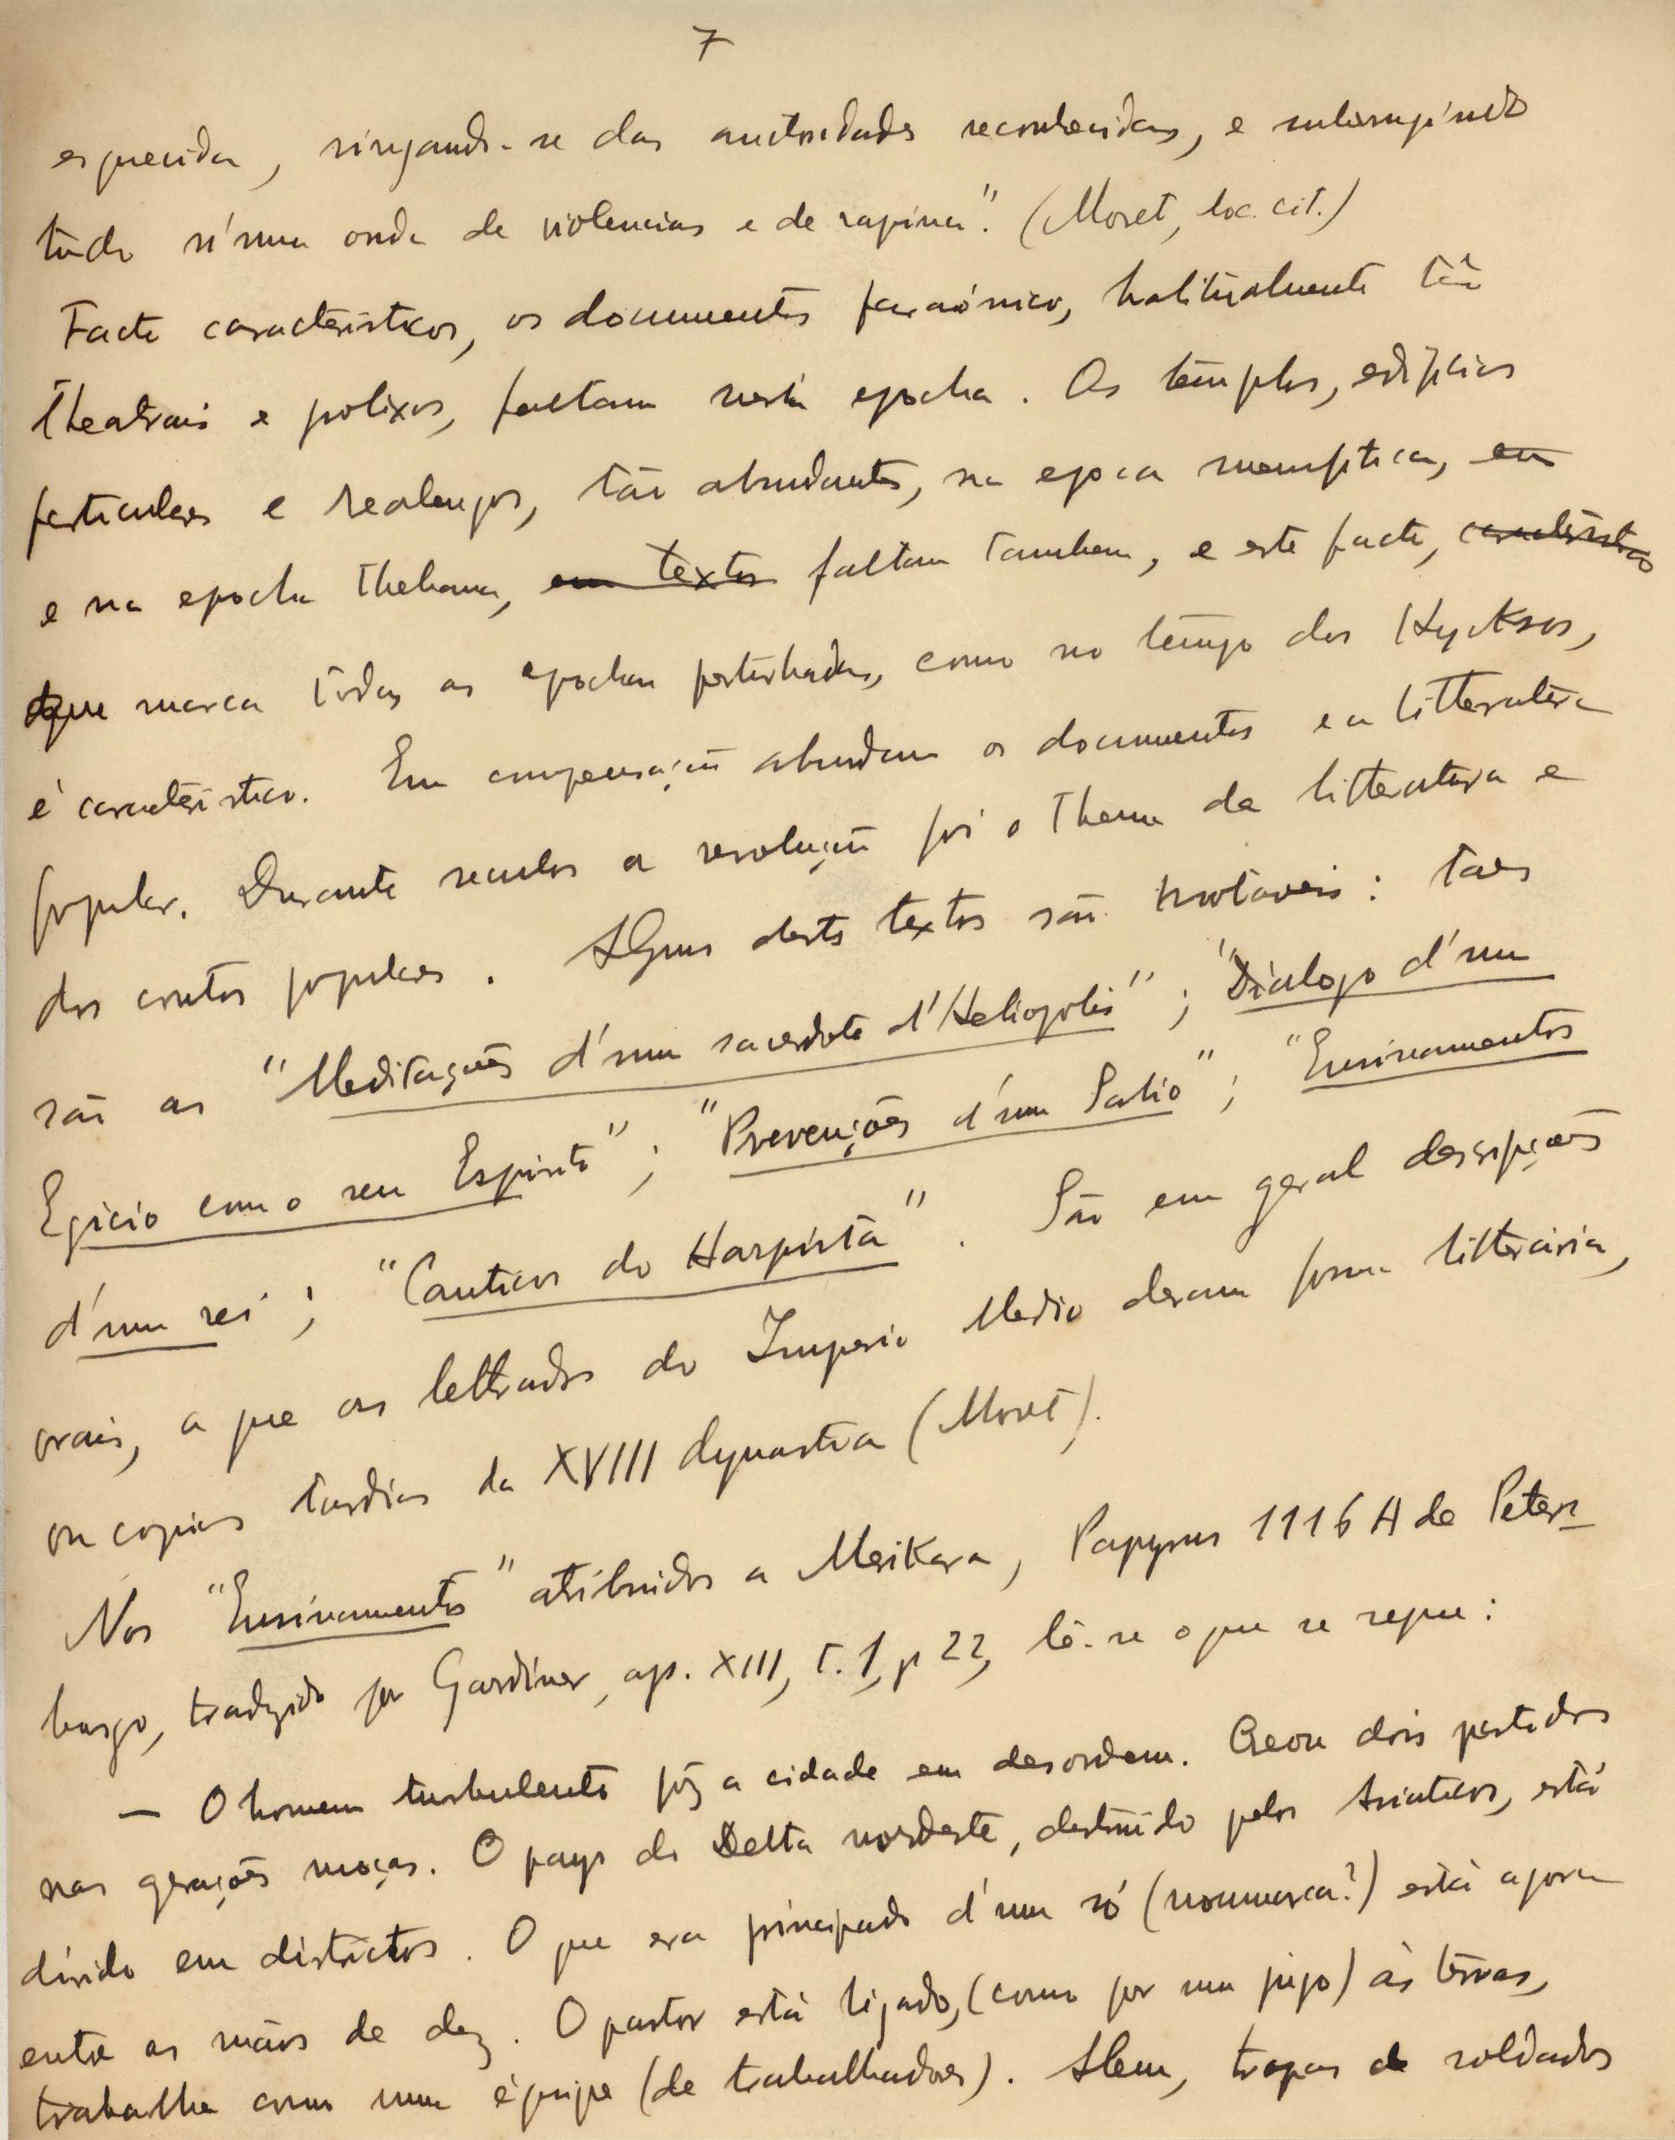 7
esquecida, vingando-se das auctoridades reconhecidas, e submergindo
tudo n'uma onda de violencias e de rapina". (Moret, loc. cit.)
Facto caracteristicos, os documentos faraónicos, habitualmente tão
theatrais e polixos, faltam nesta epocha. Os templos, edificios
particulares e realengos, tão abundantes, na epoca memfitica, em
e na epocha thebana, em textos faltam tambem, e este facto, caracteristico
que marca todas as epochas perturbadas, como no tempo dos Hycksos,
é caracteristico. Em compensação abundam os documentos e a litteratura
popular. Durante seculos a revolução foi o thema da litteratura e
dos contos populares. Alguns destes textos são notaveis: taes
são as "Meditações d'um sacerdote d'Heliopolis"; "Dialogo d'um
Egicio com o seu Espirito"; "Prevenções d'um Sabio"; "Ensinamentos
d'um rei; "Canticos do Harpista". São em geral descripções
orais, a que os lettrados do Imperio Medio deram forma litteraria,
ou copias tardias da XVIII dynastia (Moret).
Nos "Ensinamentos" atribuidos a Merikara, Papyrus 1116 A de Peters-
burgo, traduzido por Gardiner, ap. XIII, t. 1, p 22, lê-se o que se segue:
— O homem turbulento pôz a cidade em desordem. Creou dois partidos
nas gerações moças. O payz do Delta nordeste, destruido pelos Asiaticos, está
dividido em districtos. O que era principado d'um só (nommarca?) está agora
entre as mãos de dez. O pastor está ligado, (como por um jugo) às terras,
trabalha como uma équipe (de trabalhadores). Alem, tropas de soldados